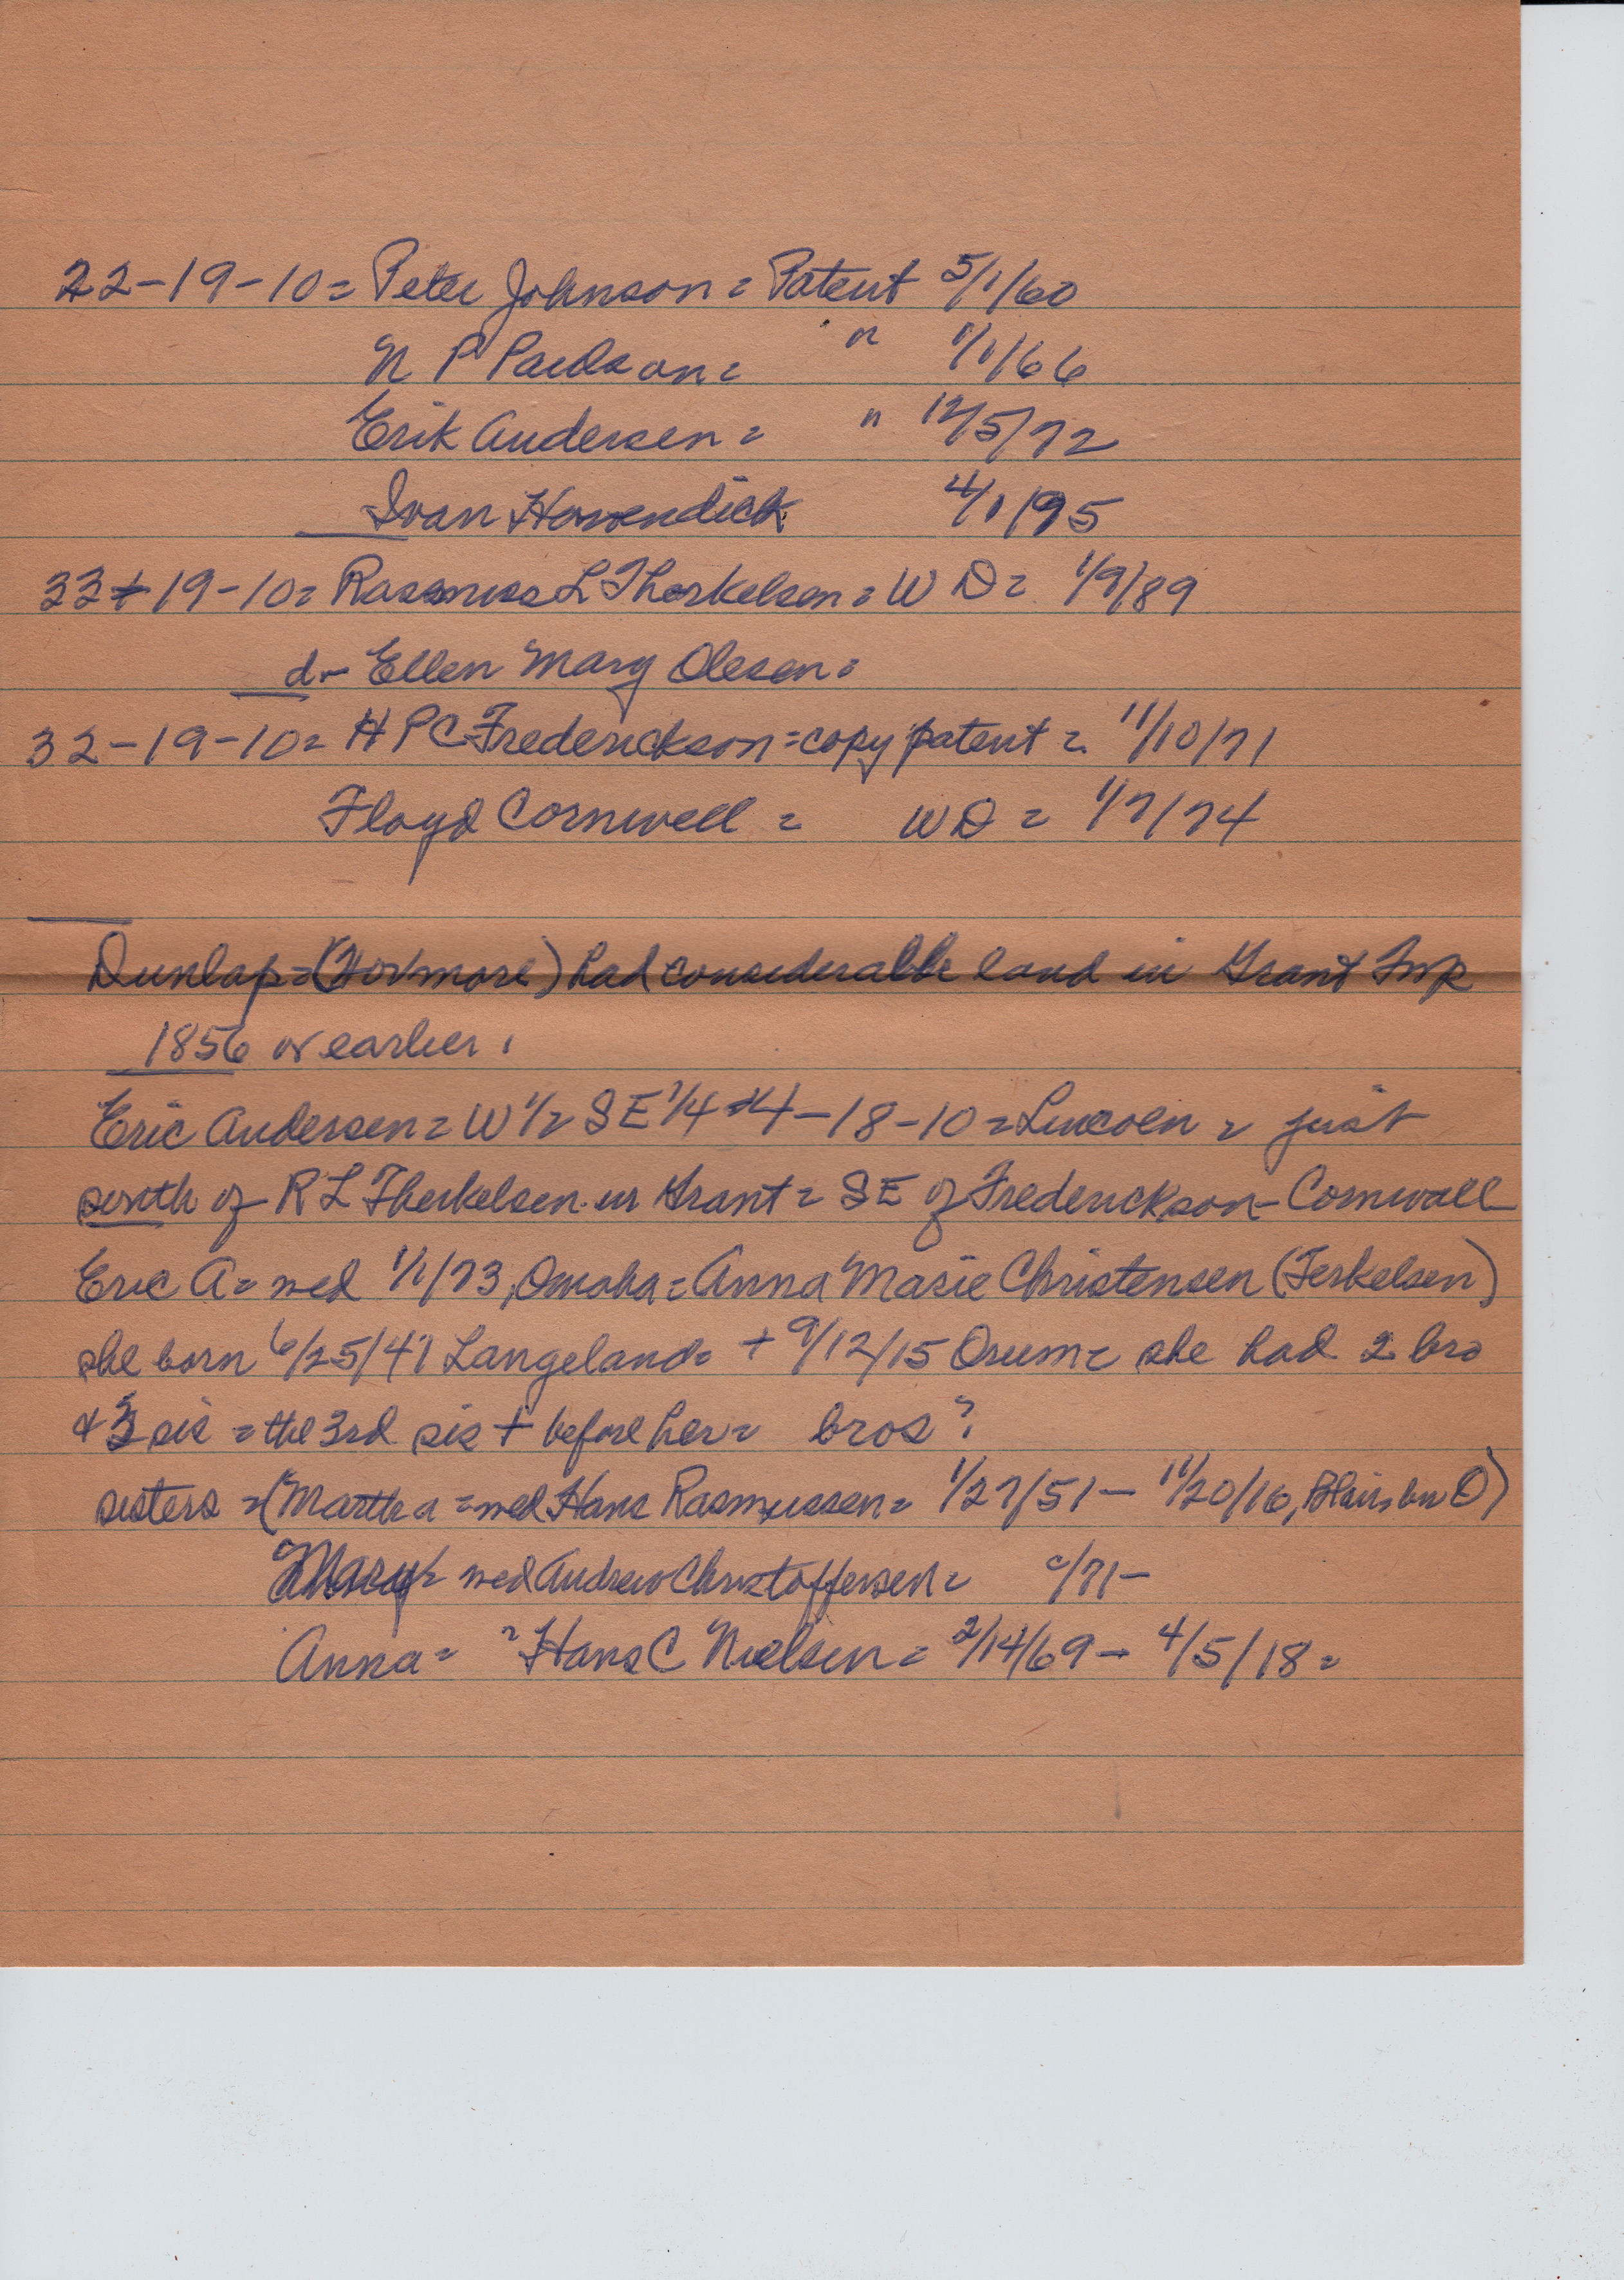 22-19-10= Peter Johnson = Patent 5/1/60
N P Paulson = " 1/1/66
Erik Andersen = " 12/5/72
Ivan Havendick 4/1/95
33-19-10= Rasmuss L Thorkelsen = W D = 1/9/89
d- Ellen Mary Olesen =
32-19-10= H P C Frederickson = copy patent = 11/10/71
Floyd Cornwell = W D = 1/7/74
Dunlap = ( ) had considerable land in Grant Twp
1856 or earlier.
Eric Andersen = W 1/2 SE 1/4 4-18-10 = Lincoln = just
south of R L Therkelsen in Grant = SE of Frederickson-Cornwall
Eric A = wed 1/1/73, Omaha = Anna Marie Christensen (Terkelsen)
she born 6/25/41 Langeland = + 9/12/15 Orum = she had 2 bro
+ 3 sis = the 3rd sis + before her = bros?
sisters = (Martha = wed Hans Rasmussen = 1/27/51 - 11/20/16, Blair, bu O)
Mary = wed Andrew Christoffersen = c/71-
Anna = " Hans C Nielsen = 2/14/69 - 4/5/18 =